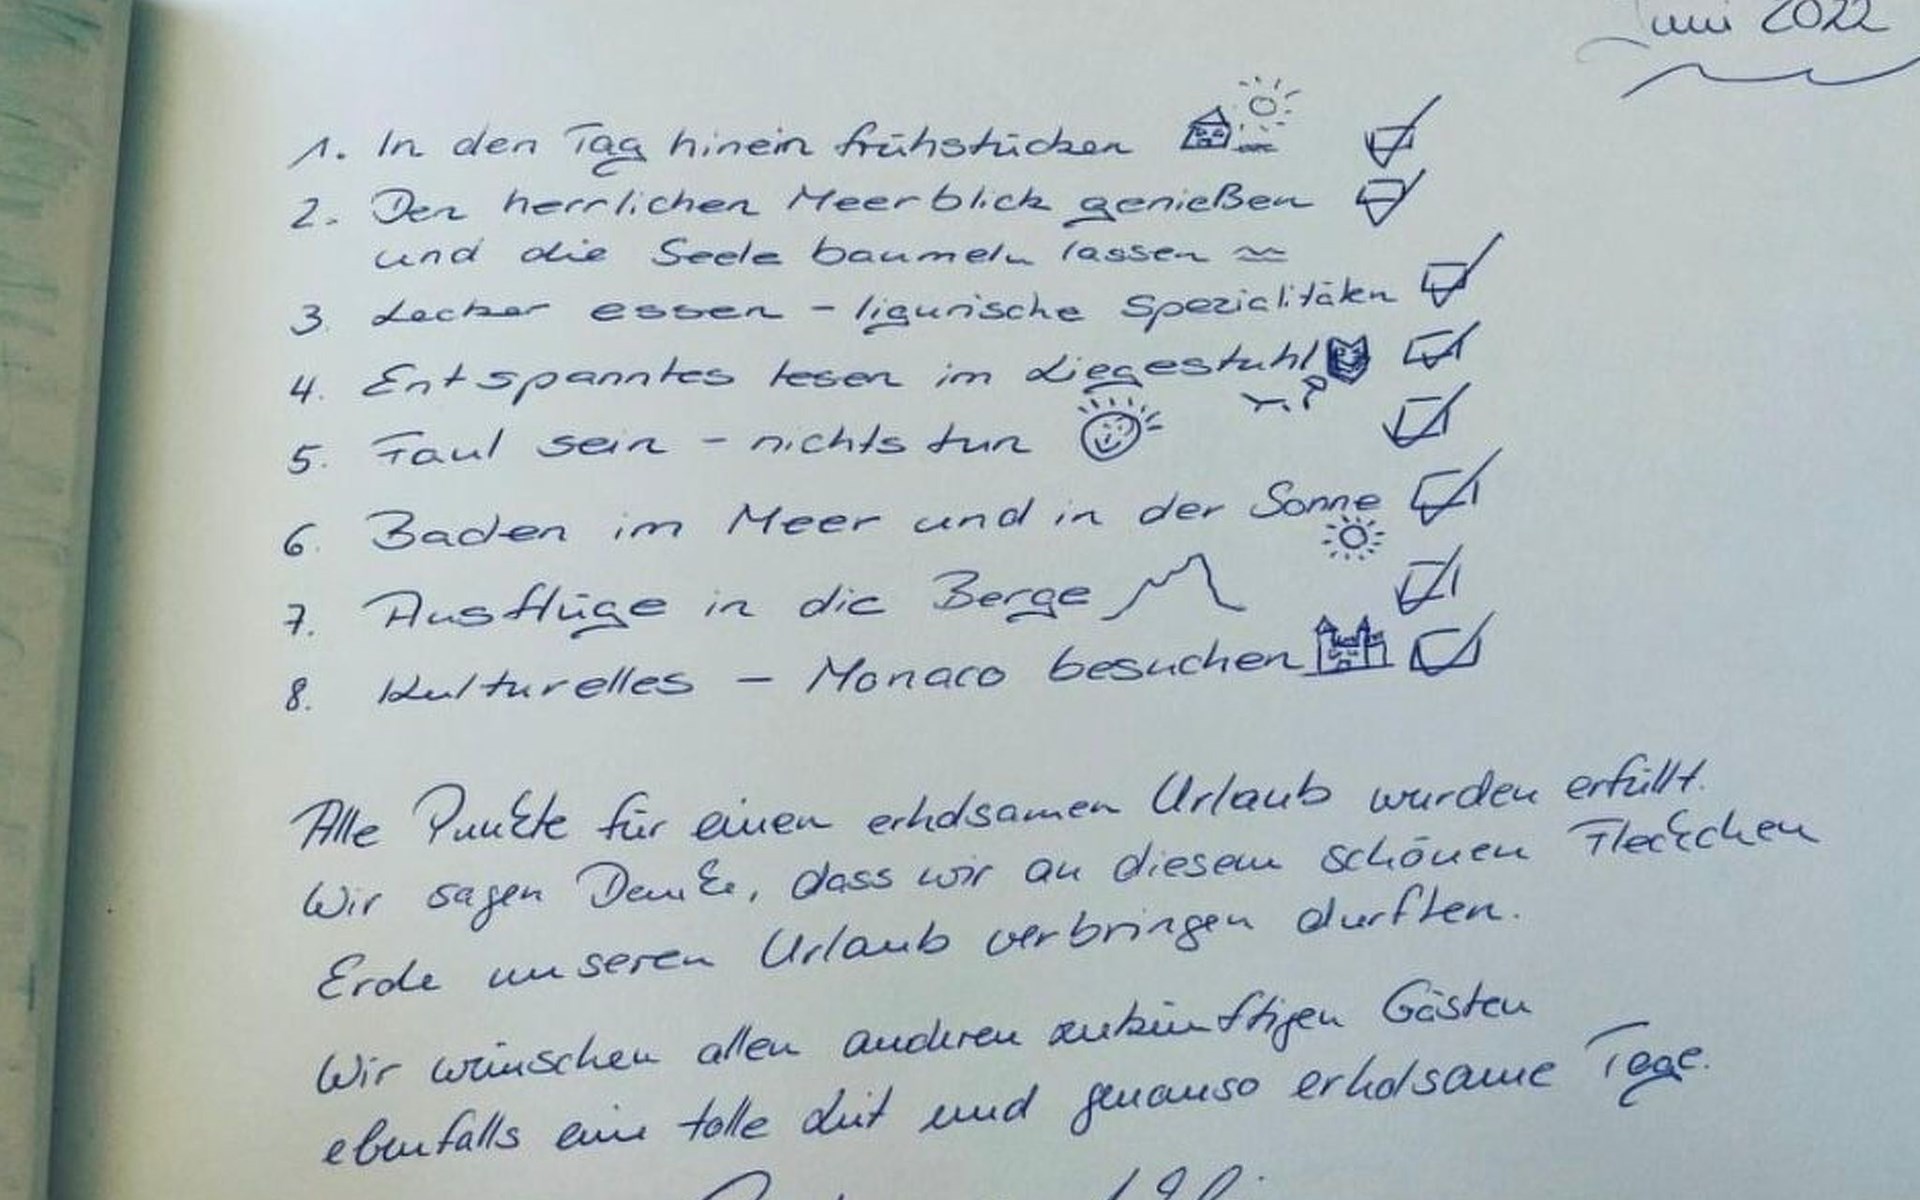 Juni 2022
1. In den Tag hinein frühstücken
2. Den herrlichen Meerblick genießen
und die Seele baumeln lassen
3. Lecker essen - ligurische Spezialitäten
4. Entspanntes lesen im Liegestuhl
5. Faul sein - nichts tun
6. Baden im Meer und in der Sonne
7. Ausflüge in die Berge
8. Kulturelles - Monaco besuchen
Alle Punkte für einen erholsamen Urlaub wurden erfüllt.
Wir sagen Danke, dass wir an diesem schönen Fleckchen
Erde unseren Urlaub verbringen durften.
Wir wünschen allen anderen zukünftigen Gästen
ebenfalls eine tolle Zeit und genauso erholsame Tage.